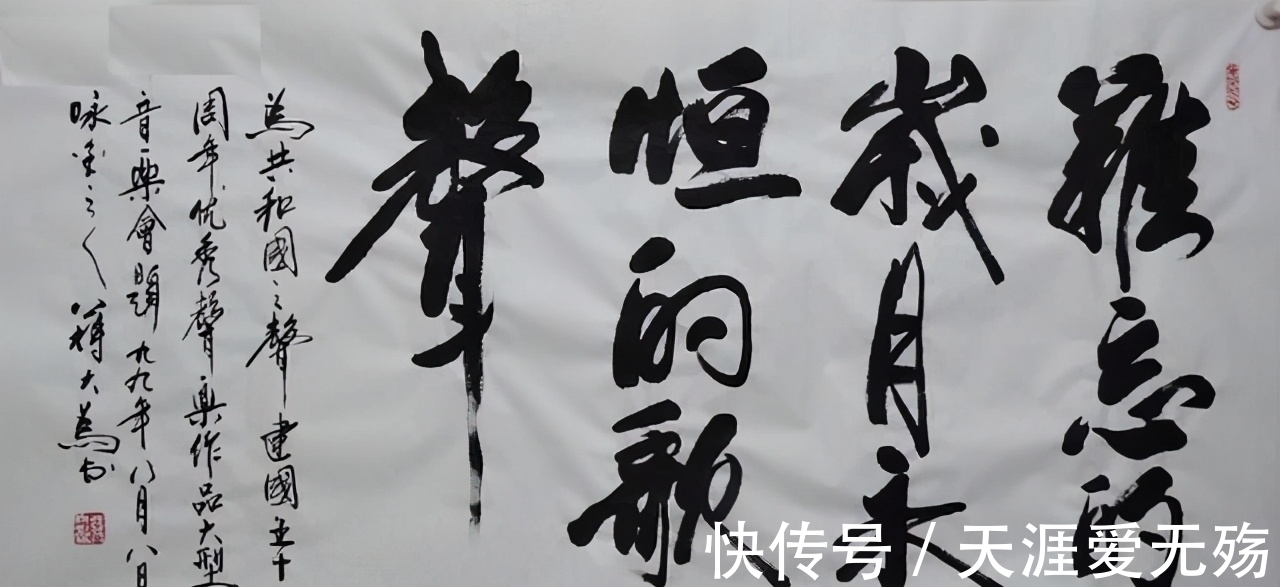 難忘的
歲月永
恒的歌
聲
為共和國之聲建國五十
周年优秀聲樂作品大型
音樂會題九九年八月八日
咏金之人蔣大為书
快传号/天涯爱无殇